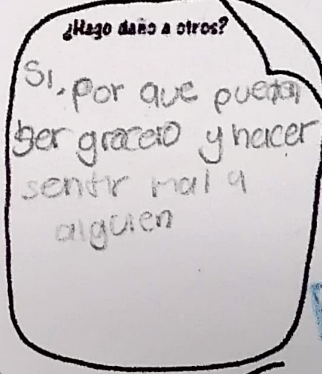 ¿Hago daño a otros?
Si, por que pueden
ser gracero y hacer
sentir mal a
alguien